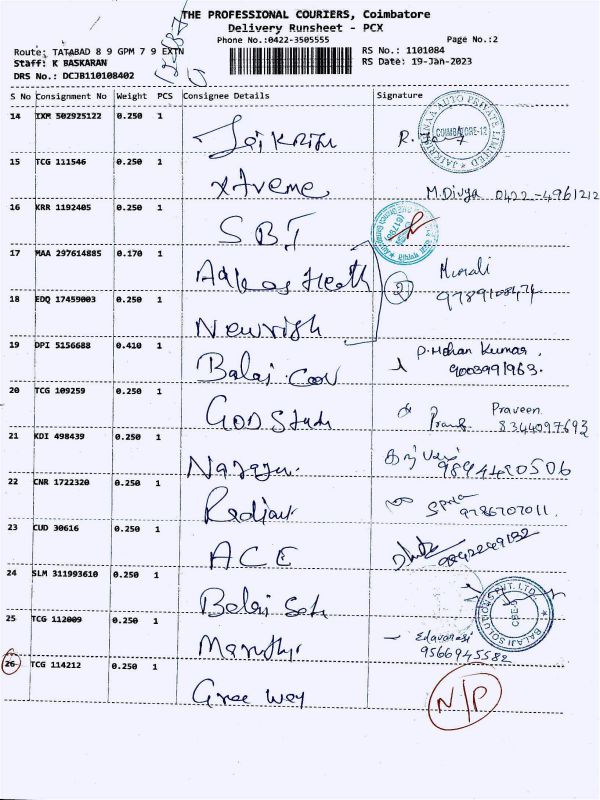 THE PROFESSIONAL COURIERS, Coimbatore
Delivery Runsheet - PCX
Phone No.:0422-3505555
Page No.:2
Route: TATABAD 8 9 GPM 7 9 EXTN
RS No.: 1101084
Staff: K BASKARAN
RS Date: 19-Jan-2023
DRS No.: DCJB110108402
S No Consignment No Weight PCS Consignee Details Signature
14 IXM 502925122 0.250 1
COIMBATORE-12
15 TCG 111546 0.250 1
xtreme M.Divya 0422-4961212
16 KRR 1192405 0.250 1
SBI
17 MAA 297614885 0.170 1
2 Murali
9789108474
18 EDQ 17459003 0.250 1
Newrish
19 DPI 5156688 0.410 1
Balaji P.Mohan Kumar.
9003991963.
20 TCG 109259 0.250 1
GOD Praveen
8344097693
21 KDI 498439 0.250 1
9894480506
22 CNR 1722320 0.250 1
Radiant
9786707011.
23 CUD 30616 0.250 1
ACE 9842249132
24 SLM 311993610 0.250 1
BALAJI SOLUTIONS PVT. LTD.
CBE-9
25 TCG 112009 0.250 1
9566945582
26 TCG 114212 0.250 1
Gree Way N/P